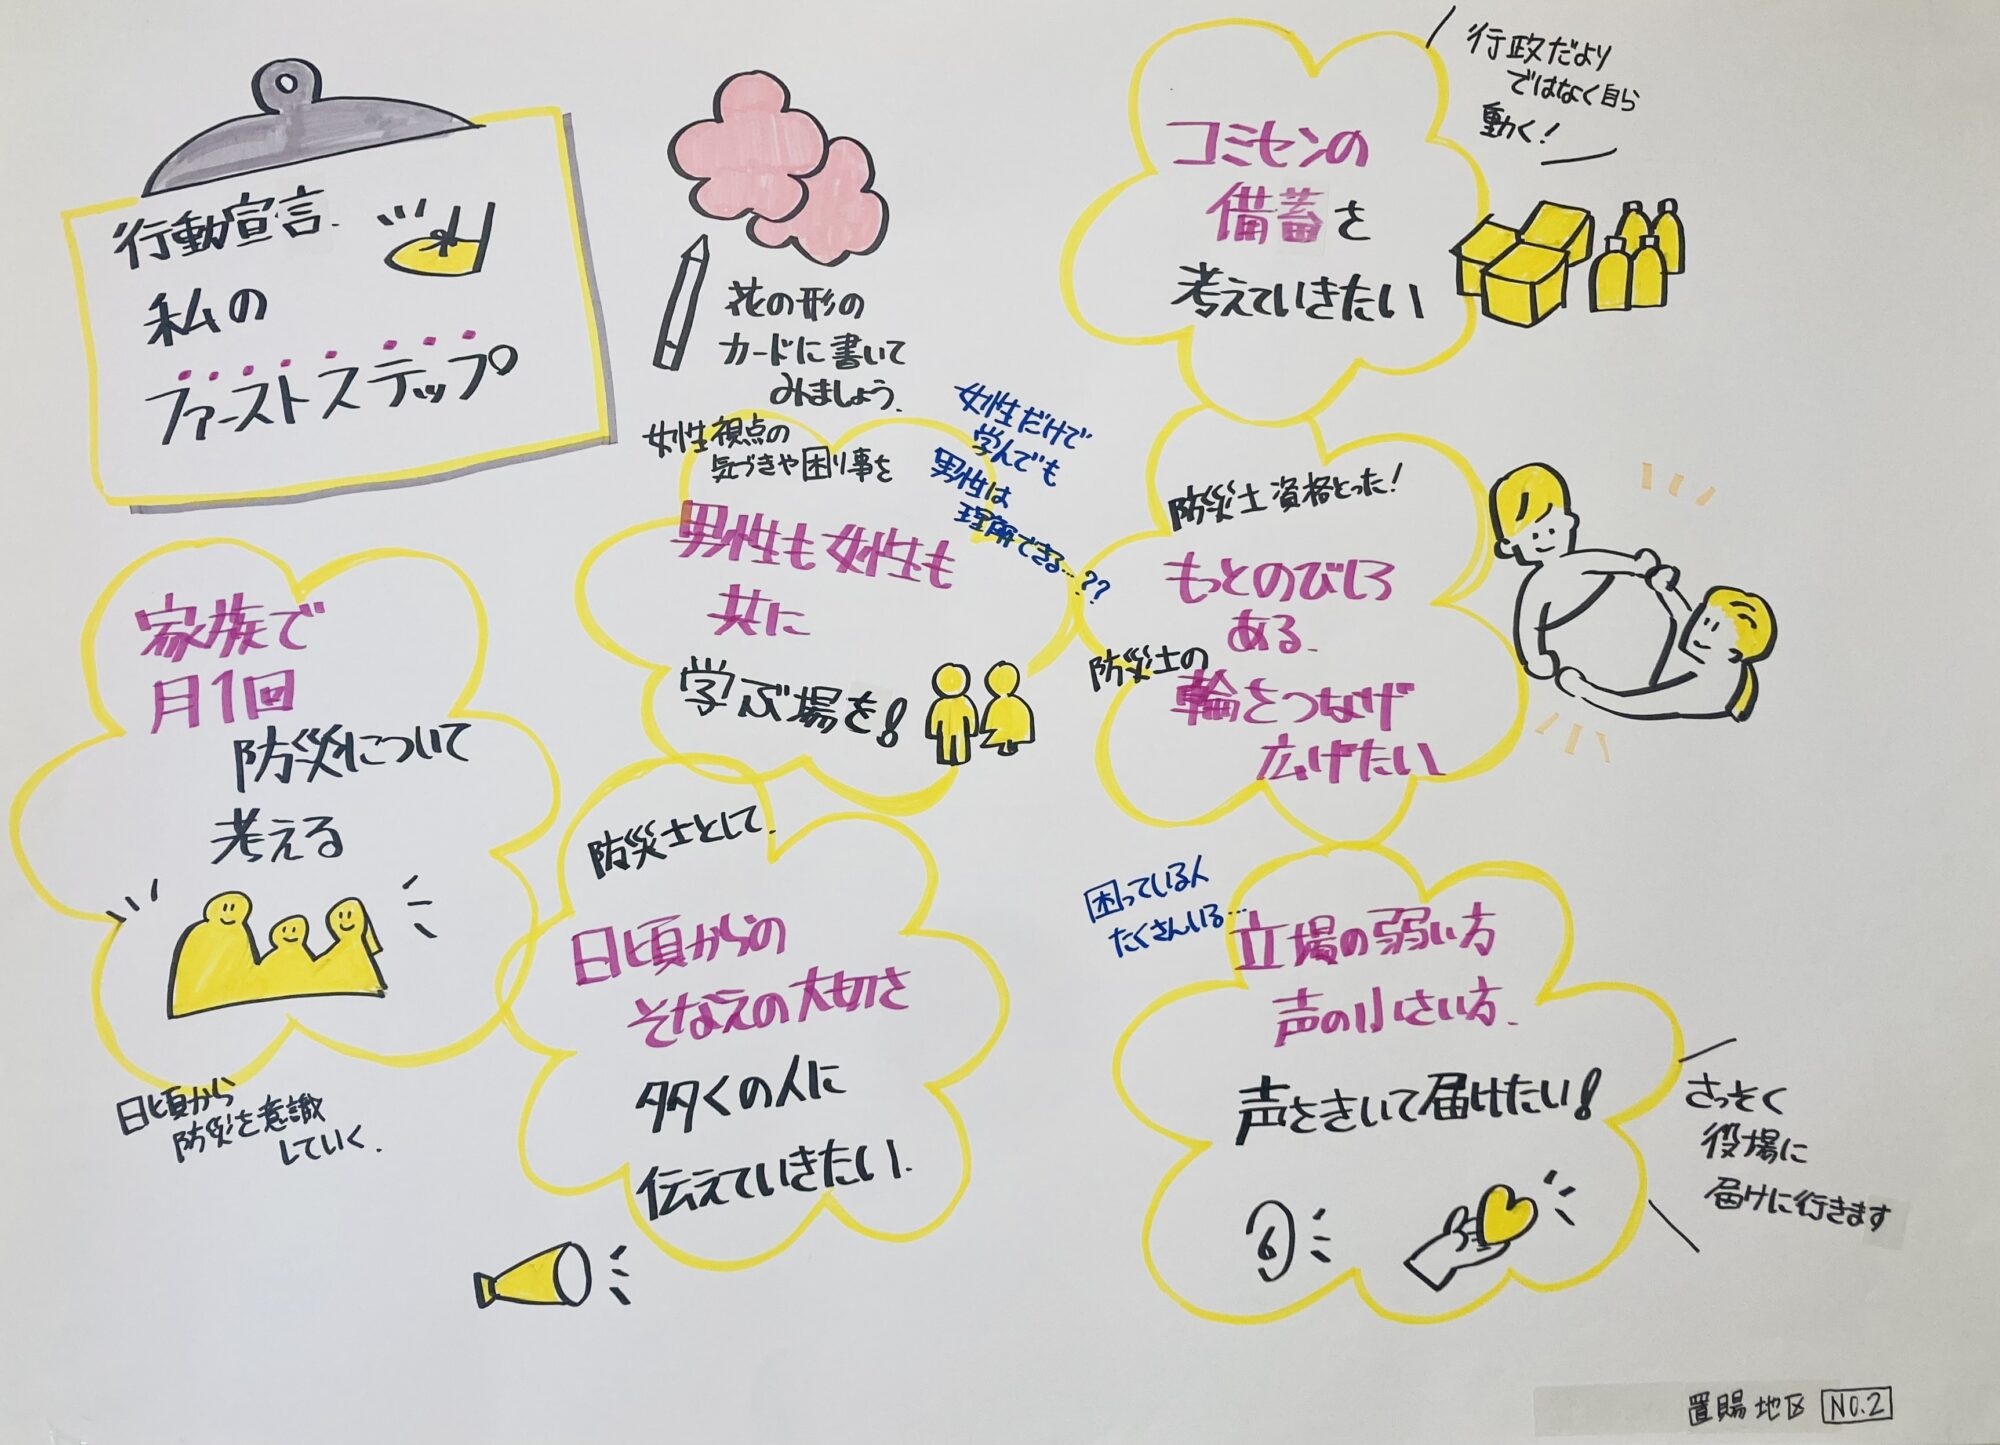 行動宣言
私の
ファーストステップ
花の形の
カードに書いて
みましょう.
コミセンの
備蓄を
考えていきたい
行政だより
ではなく自ら
動く!
女性視点の
気づきや困り事を
男性も女性も
共に
学ぶ場を!
女性だけで
学んでも
男性は
理解できる…??
防災士資格とった!
もっとのびしろ
ある.
防災士の
輪をつなげ
広げたい
家族で
月1回
防災について
考える
日頃から
防災を意識
していく.
防災士として.
日頃からの
そなえの大切さ
多くの人に
伝えていきたい.
困っている人
たくさんいる…
立場の弱い方
声の小さい方.
声をきいて届けたい!
さっそく
役場に
届けに行きます
置賜地区 NO.2